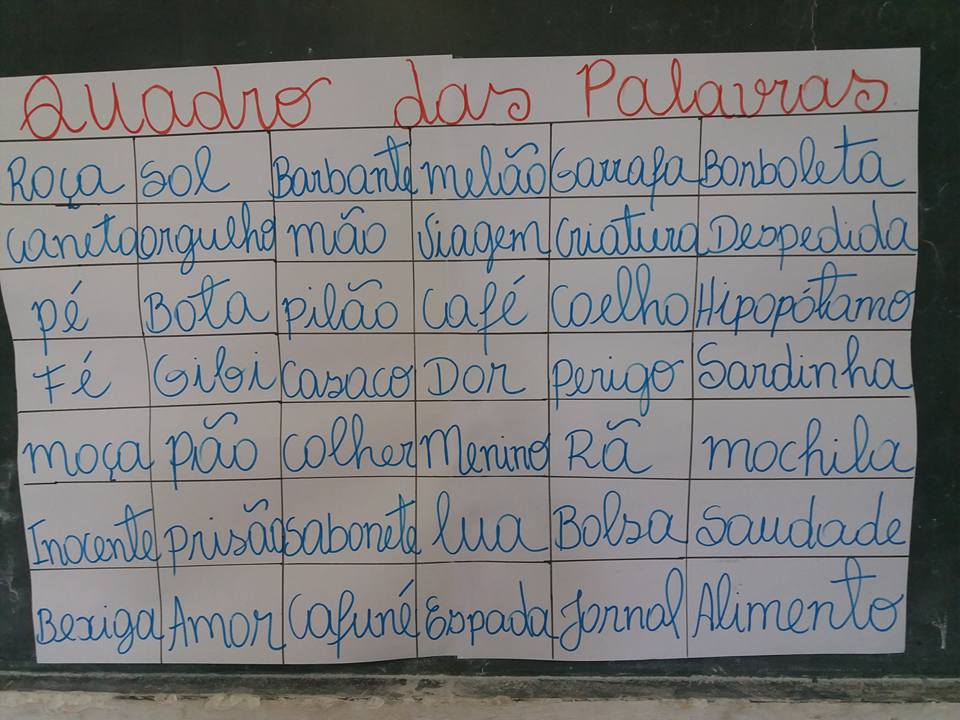 Quadro das Palavras
Roça sol Barbante melão Garrafa Borboleta
Caneta orgulho mão Viagem Criatura Despedida
pé Bota Pilão Café Coelho Hipopótamo
Fé Gibi Casaco Dor Perigo Sardinha
moça pião Colher Menino Rã mochila
Inocente prisão sabonete lua Bolsa Saudade
Bexiga Amor Cafuné Espada Jornal Alimento